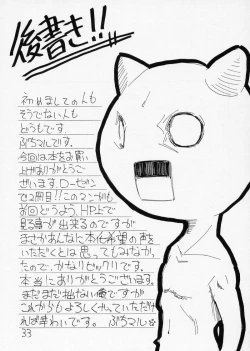 後書き!!
初めましての人も
そうでない人も
どうもです。
ぷちマルです。
今回は本をお買い
上げありがとうご
ざいます。ローゼン
で2冊目!!このマンガも
前回どうよう、HP上で
見る事が出来るのですが
まさかあんなに本化希望の声を
いただくとは思ってもみなかっ
たので、かなりビックリです。
本当にありがとうございます。
まだまだ拙ない俺ですが
これからもよろしくやっていただけ
れば幸いです。 ぷちマル
33